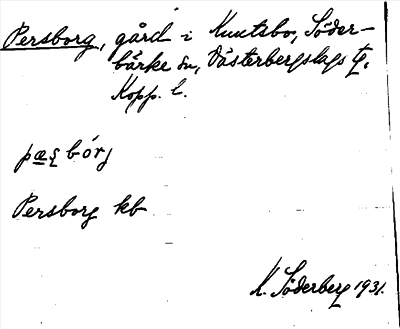 Persborg, gård i Knutsbo, Söder-
bärke sn, Västerbergslags tg.
Kopp. l.
pæʂ bórj
Persborg kb
K. Söderberg 1931.